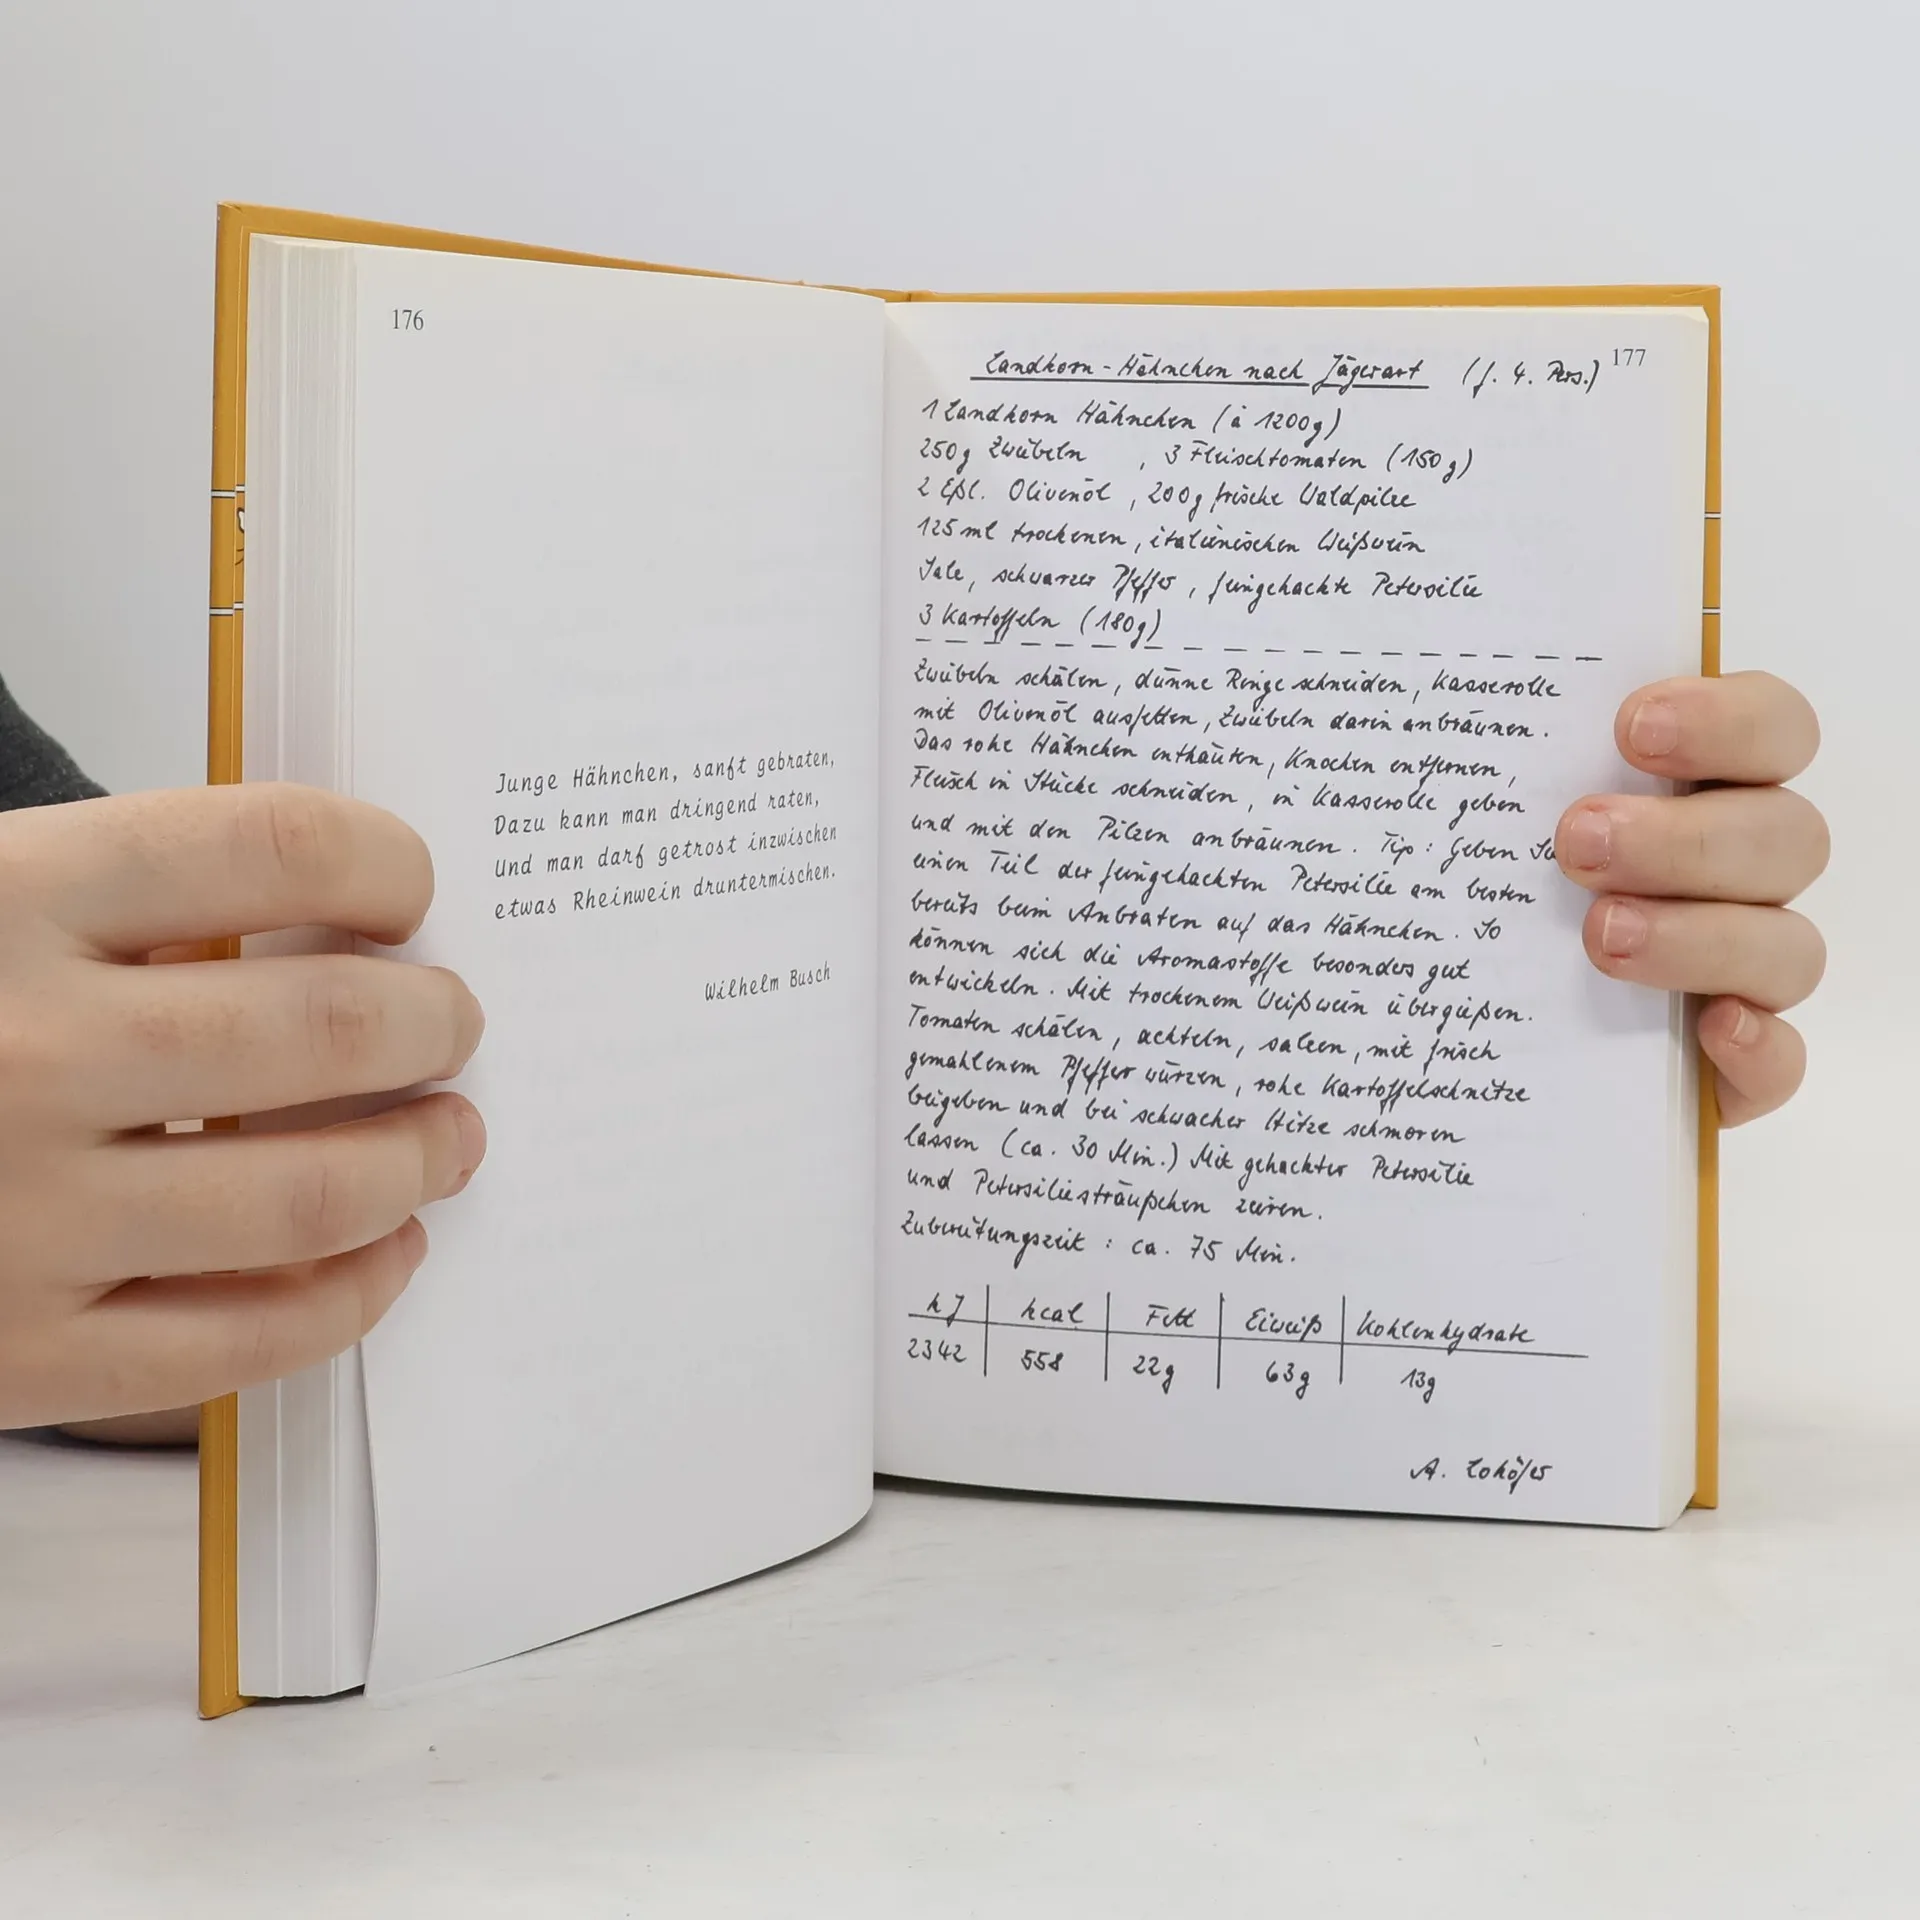 176
Junge Hähnchen, sanft gebraten,
Dazu kann man dringend raten,
Und man darf getrost inzwischen
etwas Rheinwein druntermischen.
Wilhelm Busch
177
Landkorn-Hähnchen nach Jägerart (f. 4. Pers.)
1 Landkorn Hähnchen (à 1200g)
250g Zwiebeln , 3 Fleischtomaten (150g)
2 Eßl. Olivenöl, 200g frische Waldpilze
125 ml trockenen, italienischen Weißwein
Salz, schwarzer Pfeffer, feingehackte Petersilie
3 Kartoffeln (180g)
Zwiebeln schälen, dünne Ringe schneiden, Kasserolle
mit Olivenöl ausfetten, Zwiebeln darin anbräunen.
Das rohe Hähnchen enthäuten, Knochen entfernen,
Fleisch in Stücke schneiden, in Kasserolle geben
und mit den Pilzen anbräunen. Tip: Geben
einen Teil der feingehackten Petersilie am besten
bereits beim Anbraten auf das Hähnchen. So
können sich die Aromastoffe besonders gut
entwickeln. Mit trockenem Weißwein übergießen.
Tomaten schälen, achteln, salzen, mit frisch
gemahlenem Pfeffer würzen, rohe Kartoffelschnitze
beigeben und bei schwacher Hitze schmoren
lassen (ca. 30 Min.) Mit gehackter Petersilie
und Petersiliesträußchen zieren.
Zubereitungszeit: ca. 75 Min.
kJ kcal Fett Eiweiß Kohlenhydrate
2342 558 22g 63g 13g
A. Lohöfer